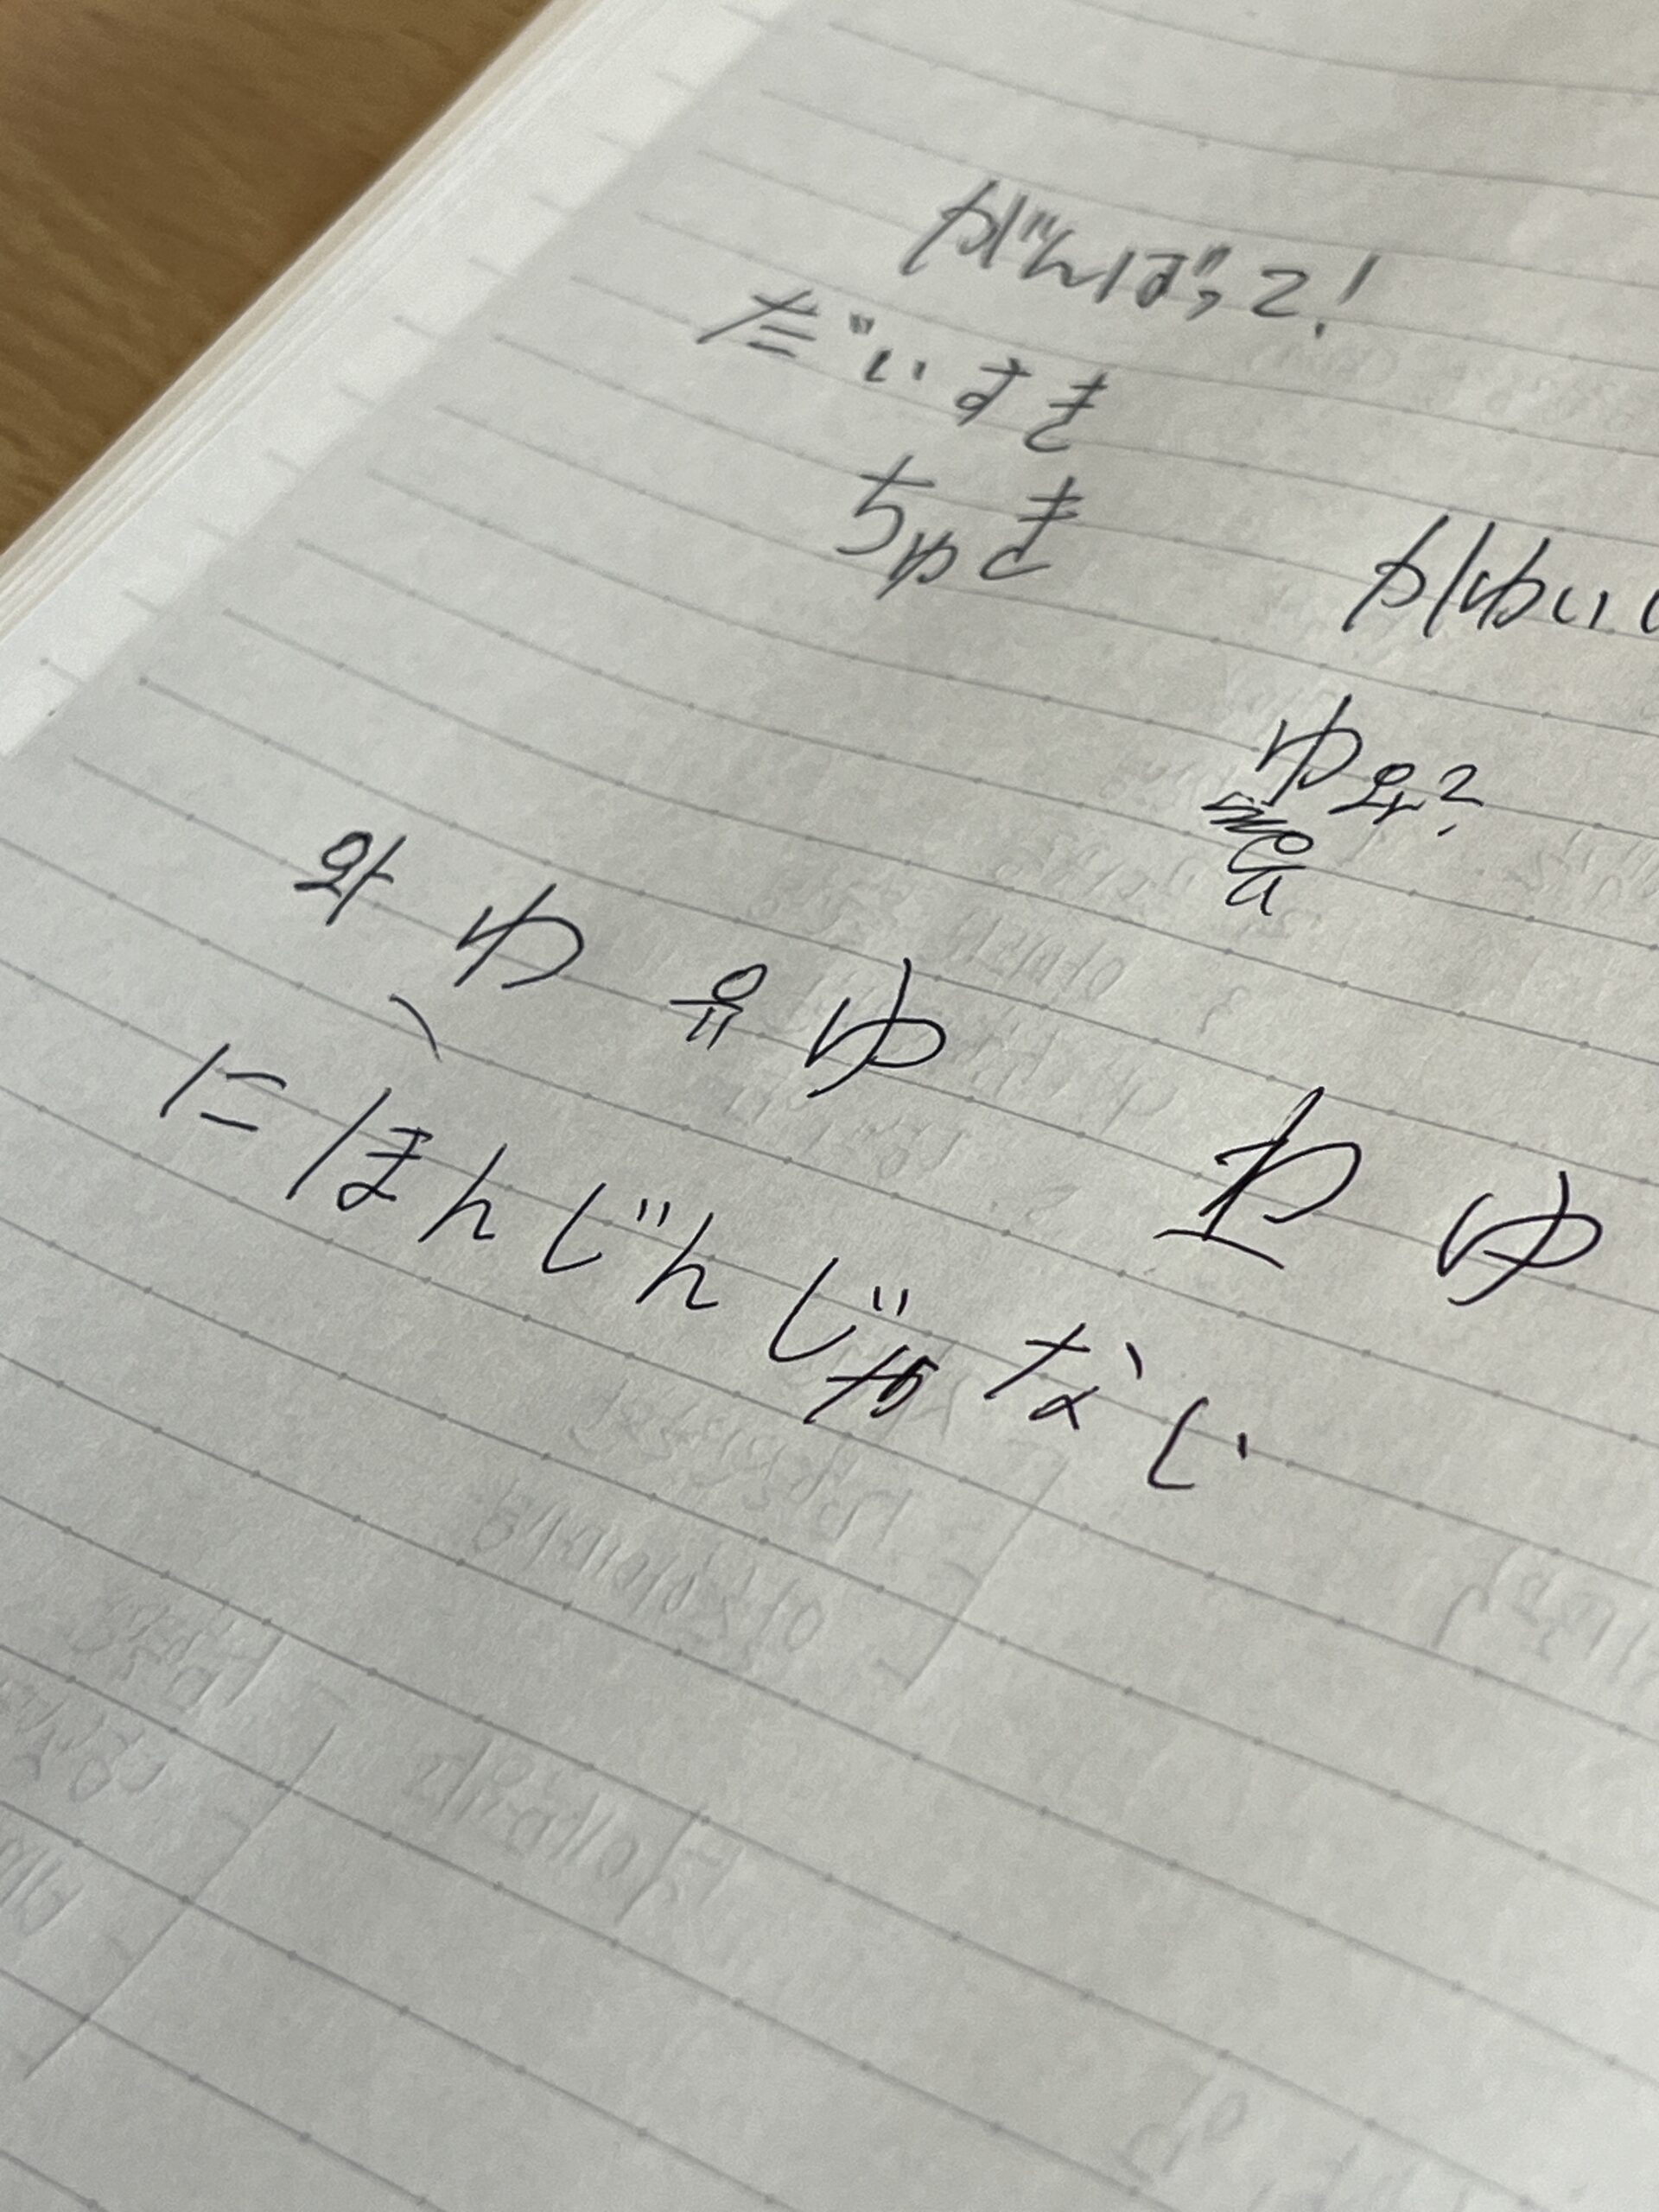 がんばって!
だいすき
ちゅき
かわいい
ゆ 와?
와 わ 유 ゆ
わ ゆ
にほんじんじゃない